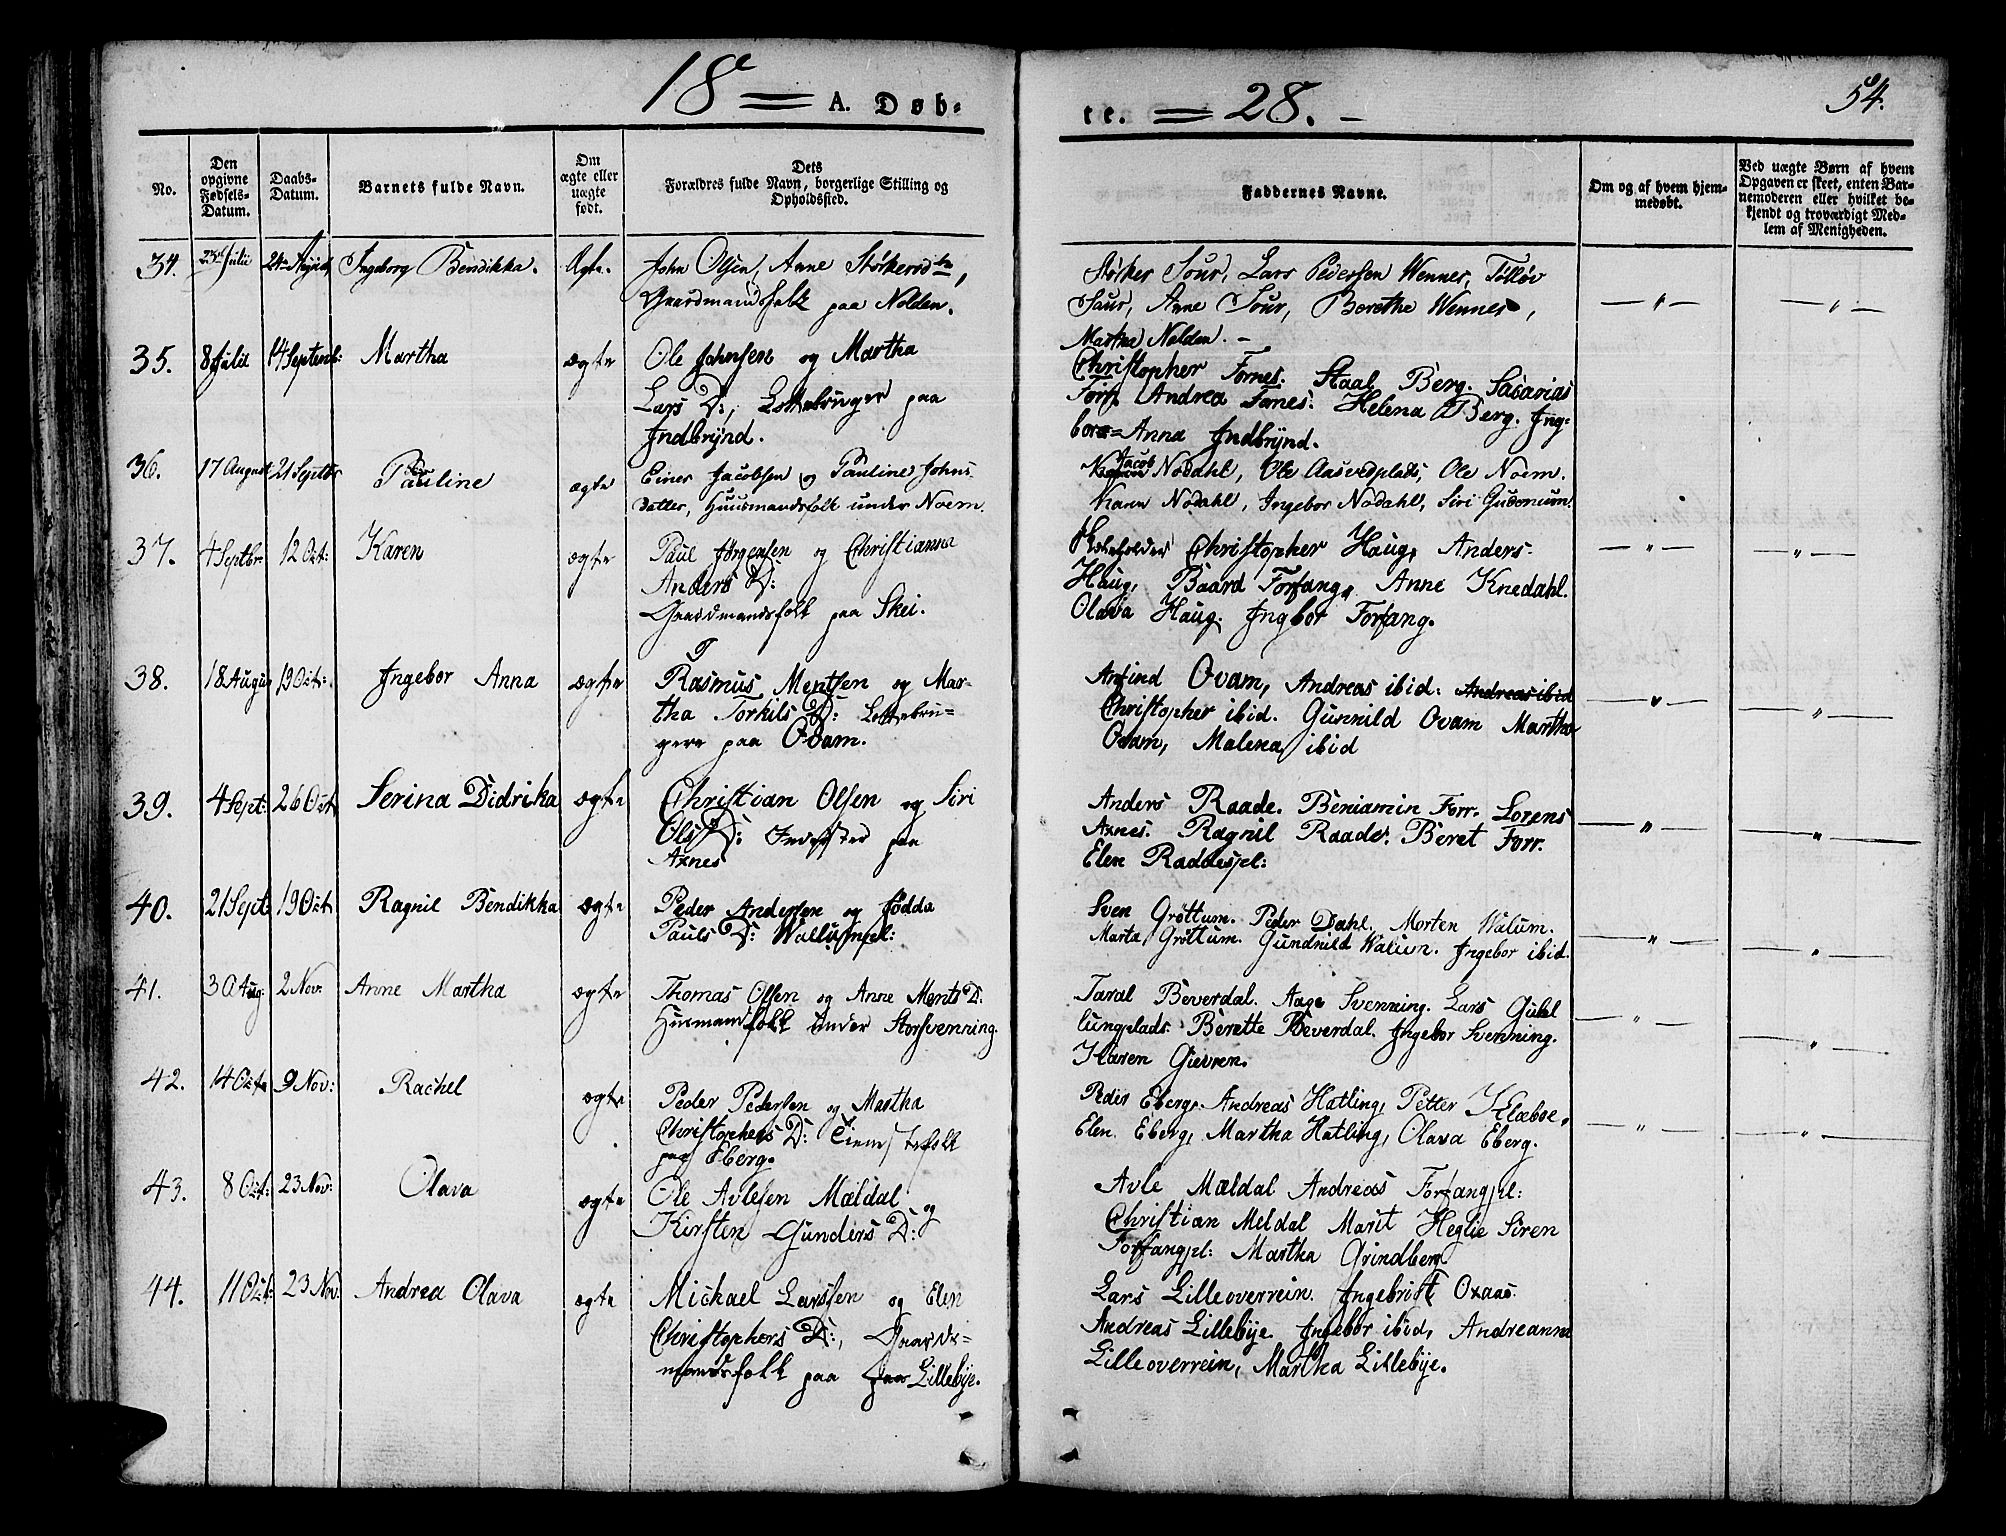 18 = A. Døb-
te. = 28. –
54.
No.
Den opgivne Fødsels-Datum.
Daabs-Datum.
Barnets fulde Navn.
Om ægte eller uægte født.
Dets Forældres fulde Navn, borgerlige Stilling og Opholdssted.
Faddernes Navne.
Om og af hvem hjem-medøbt.
Ved uægte Børn af hvem Opgaven er skeet, enten Bar-nemoderen eller hvilket be-kjendt og troværdigt Med-lem af Menigheden.
34. Julii 24 August Ingeborg Bendikka. Ægte. John Olsen, Anne
Gaardmandsfolk paa Nolden.
Størker Sour, Lars Pedersen Wennes, Tølløv
Saur, Anne Sour, Berethe Wennes,
Martha Nolden. –
35. 8 Julii 14 Septemb: Martha ægte Ole Johnsen og Martha
Lars D:, paa
Indbrynd.
Christopher Fornes. Staal Berg. Sacarias
Forr. Andrea Fornes. Helena Berg. Ing-
bor= Anna Indbrynd.
36. 17 August 21 Septbr Pauline ægte Einer Jacobsen og Pauline Johns-
datter, Huusmandsfolk under Noem.
Jacob Nødahl, Ole Aasvedplads, Ole Noem.
Karn Nødahl, Ingebor Nødahl, Siri
37. 4 Septbr. 12 Oct: Karen ægte Paul Jørgensen og Christianna
Anders D:
Gaardmandsfolk paa Skei.
Skoleholder Christopher Haug, Anders
Haug, Baard Forfang, Anne Knedahl.
Olava Haug. Ingbor Forfang.
38. 18 August 19 Oct: Ingebor Anna ægte Rasmus Mentsen og Mar-
tha Torkils D:
paa Qvam.
Arfind Qvam, Andreas ibid: Andreas ibid
Christopher ibid. Gunnild Qvam Martha
Qvam, Malena ibid
39. 4 Sept: 26 Oct Serina Didrika ægte Christian Olsen og Siri
Ols D: Inderster paa
Axnes
Anders Raade. Beniamin Forr. Lorens
Axnes. Ragnil Raade. Beret Forr.
Elen Raddespl:
40. 21 Sept: 19 Oct Ragnil Bendikka ægte Peder Andersen og Jødda
Pauls D: Wallumpl:
Sven Grøttum. Peder Dahl. Morten Walum.
Marta Grøttum. Gundnild Walum. Ingebor ibid.
41. 30 Aug: 2 Nov: Anne Martha ægte Thomas Olsen og Anne Ments D:
Husmandfolk under Storsvenning.
Taral Beverdal. Aage Svenning. Lars
lungplads. Berette Beverdal. Ingebor Svenning.
Karen Gievren.
42. 14 Oct 9 Nov: Rachel ægte Peder Pedersen og Martha
Christophers D: Tienestefolk
paa Eberg.
Peder Eberg. Andreas Hatling, Petter Klæboe,
Elen Eberg, Martha Hatling, Olava Eberg.
43. 8 Oct: 23 Nov: Olava ægte Ole Avlesen Mældal og
Kirsten Gunders D:
Avle Mældal Andreas Forfangpl:
Christian Meldal Marit Heglie Siren
Forfangpl: Martha Grindberg
44. 11 Oct: 23 Nov. Andrea Olava ægte Michael Larssen og Elen
Christophers D:, Gaard-
mandsfolk paa paa Lillebye.
Lars Lilleoverrein. Ingebrigt Oxaas.
Andreas Lillebye. Ingebor ibid, Andreanna
Lilleoverrein, Martha Lillebye.